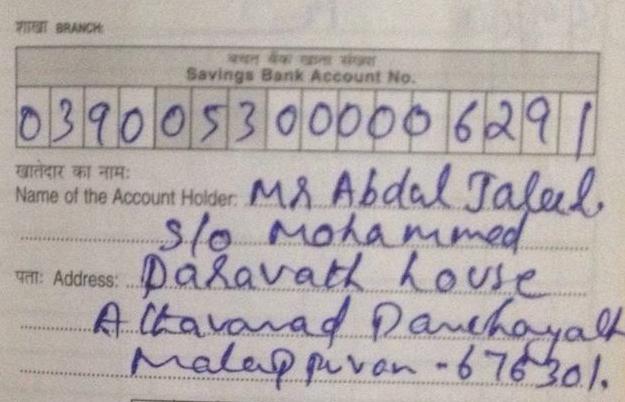 शाखा BRANCH:
बचत बैंक खाता संख्या
Savings Bank Account No.
0390053000006291
खातेदार का नाम:
Name of the Account Holder: Mr Abdul Jaleel.
S/o Mohammed
पता: Address: Paravath house
Athavanad Panchayath
Malappuram - 676301.